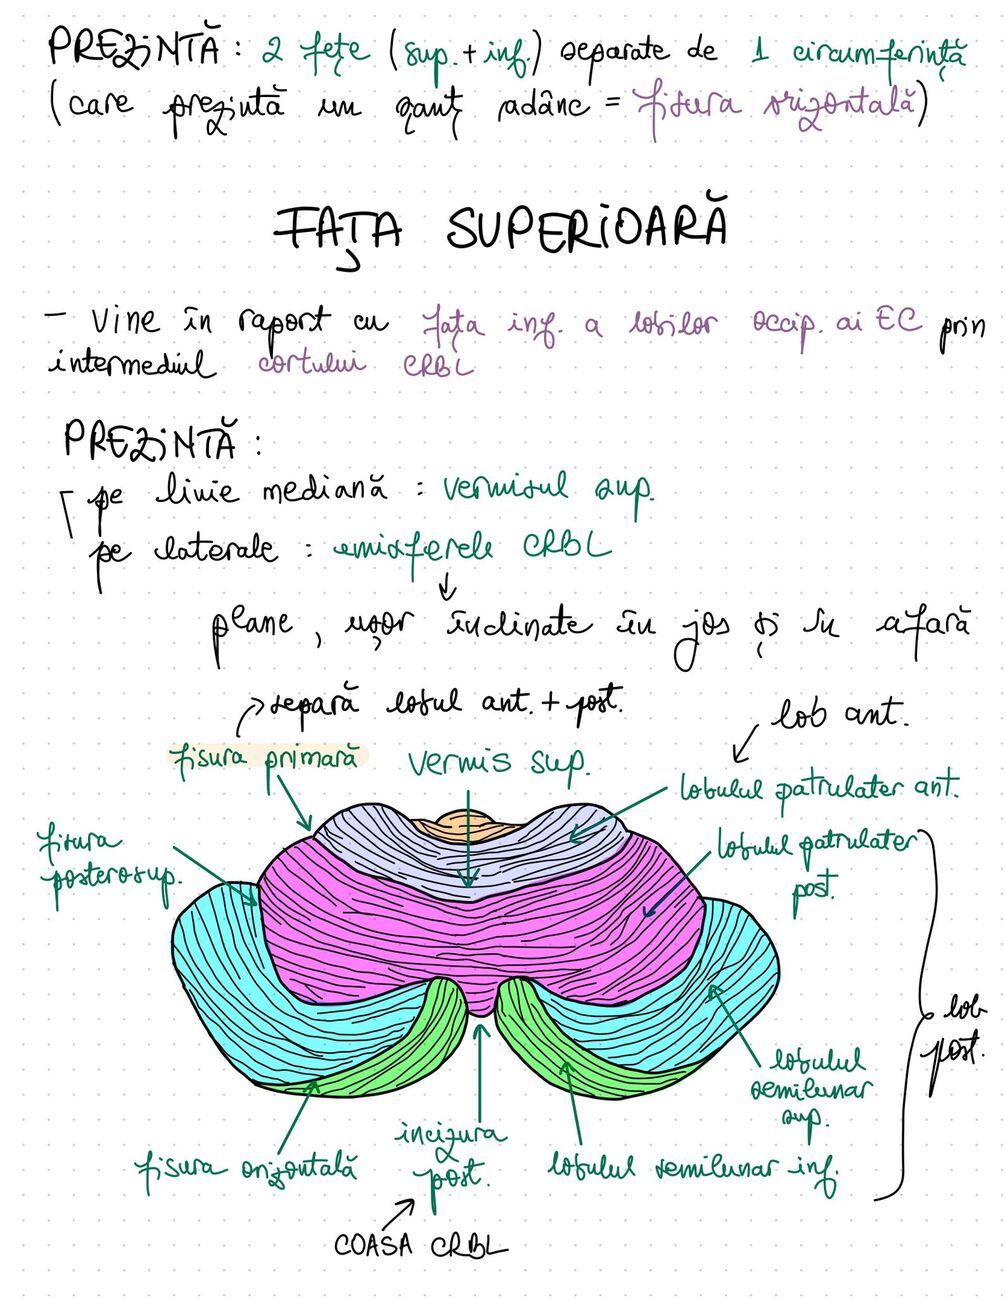 PREZINTĂ: 2 fețe (sup. + inf.) separate de 1 circumferință
(care prezintă un șanț adânc = fisura orizontală)
FAȚA SUPERIOARĂ
- vine în raport cu fața inf. a lobilor occip. ai EC prin
intermediul cortului CRBL
PREZINTĂ:
pe linie mediană : vermisul sup.
pe laterale : emisferele CRBL
plane, ușor înclinate în jos și în afară
separă lobul ant. + post.
lob ant.
fisura primară
vermis sup.
lobulul patrulater ant.
fisura
posterosup.
lobulul patrulater
post.
lob
post.
lobulul
semilunar
sup.
incizura
post.
fisura orizontală
lobulul semilunar inf.
COASA CRBL